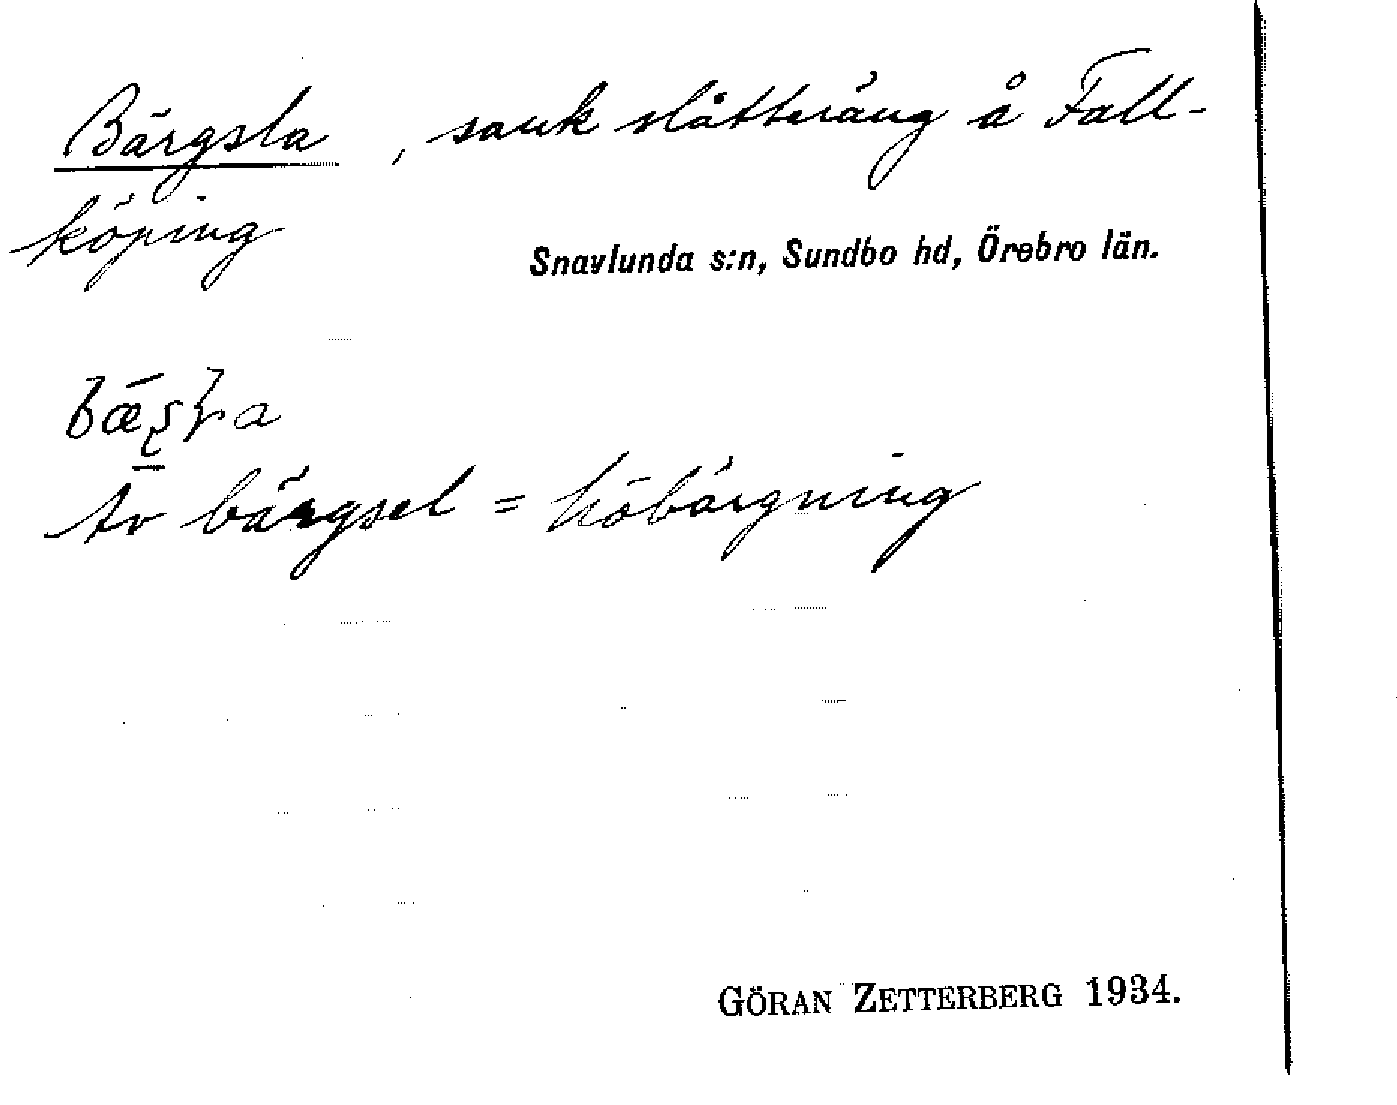 Bärgsla, sank slåtteräng å Fall-
köping
Snavlunda s:n, Sundbo hd, Örebro län.
Av bärgsel = höbärgning
GÖRAN ZETTERBERG 1934.